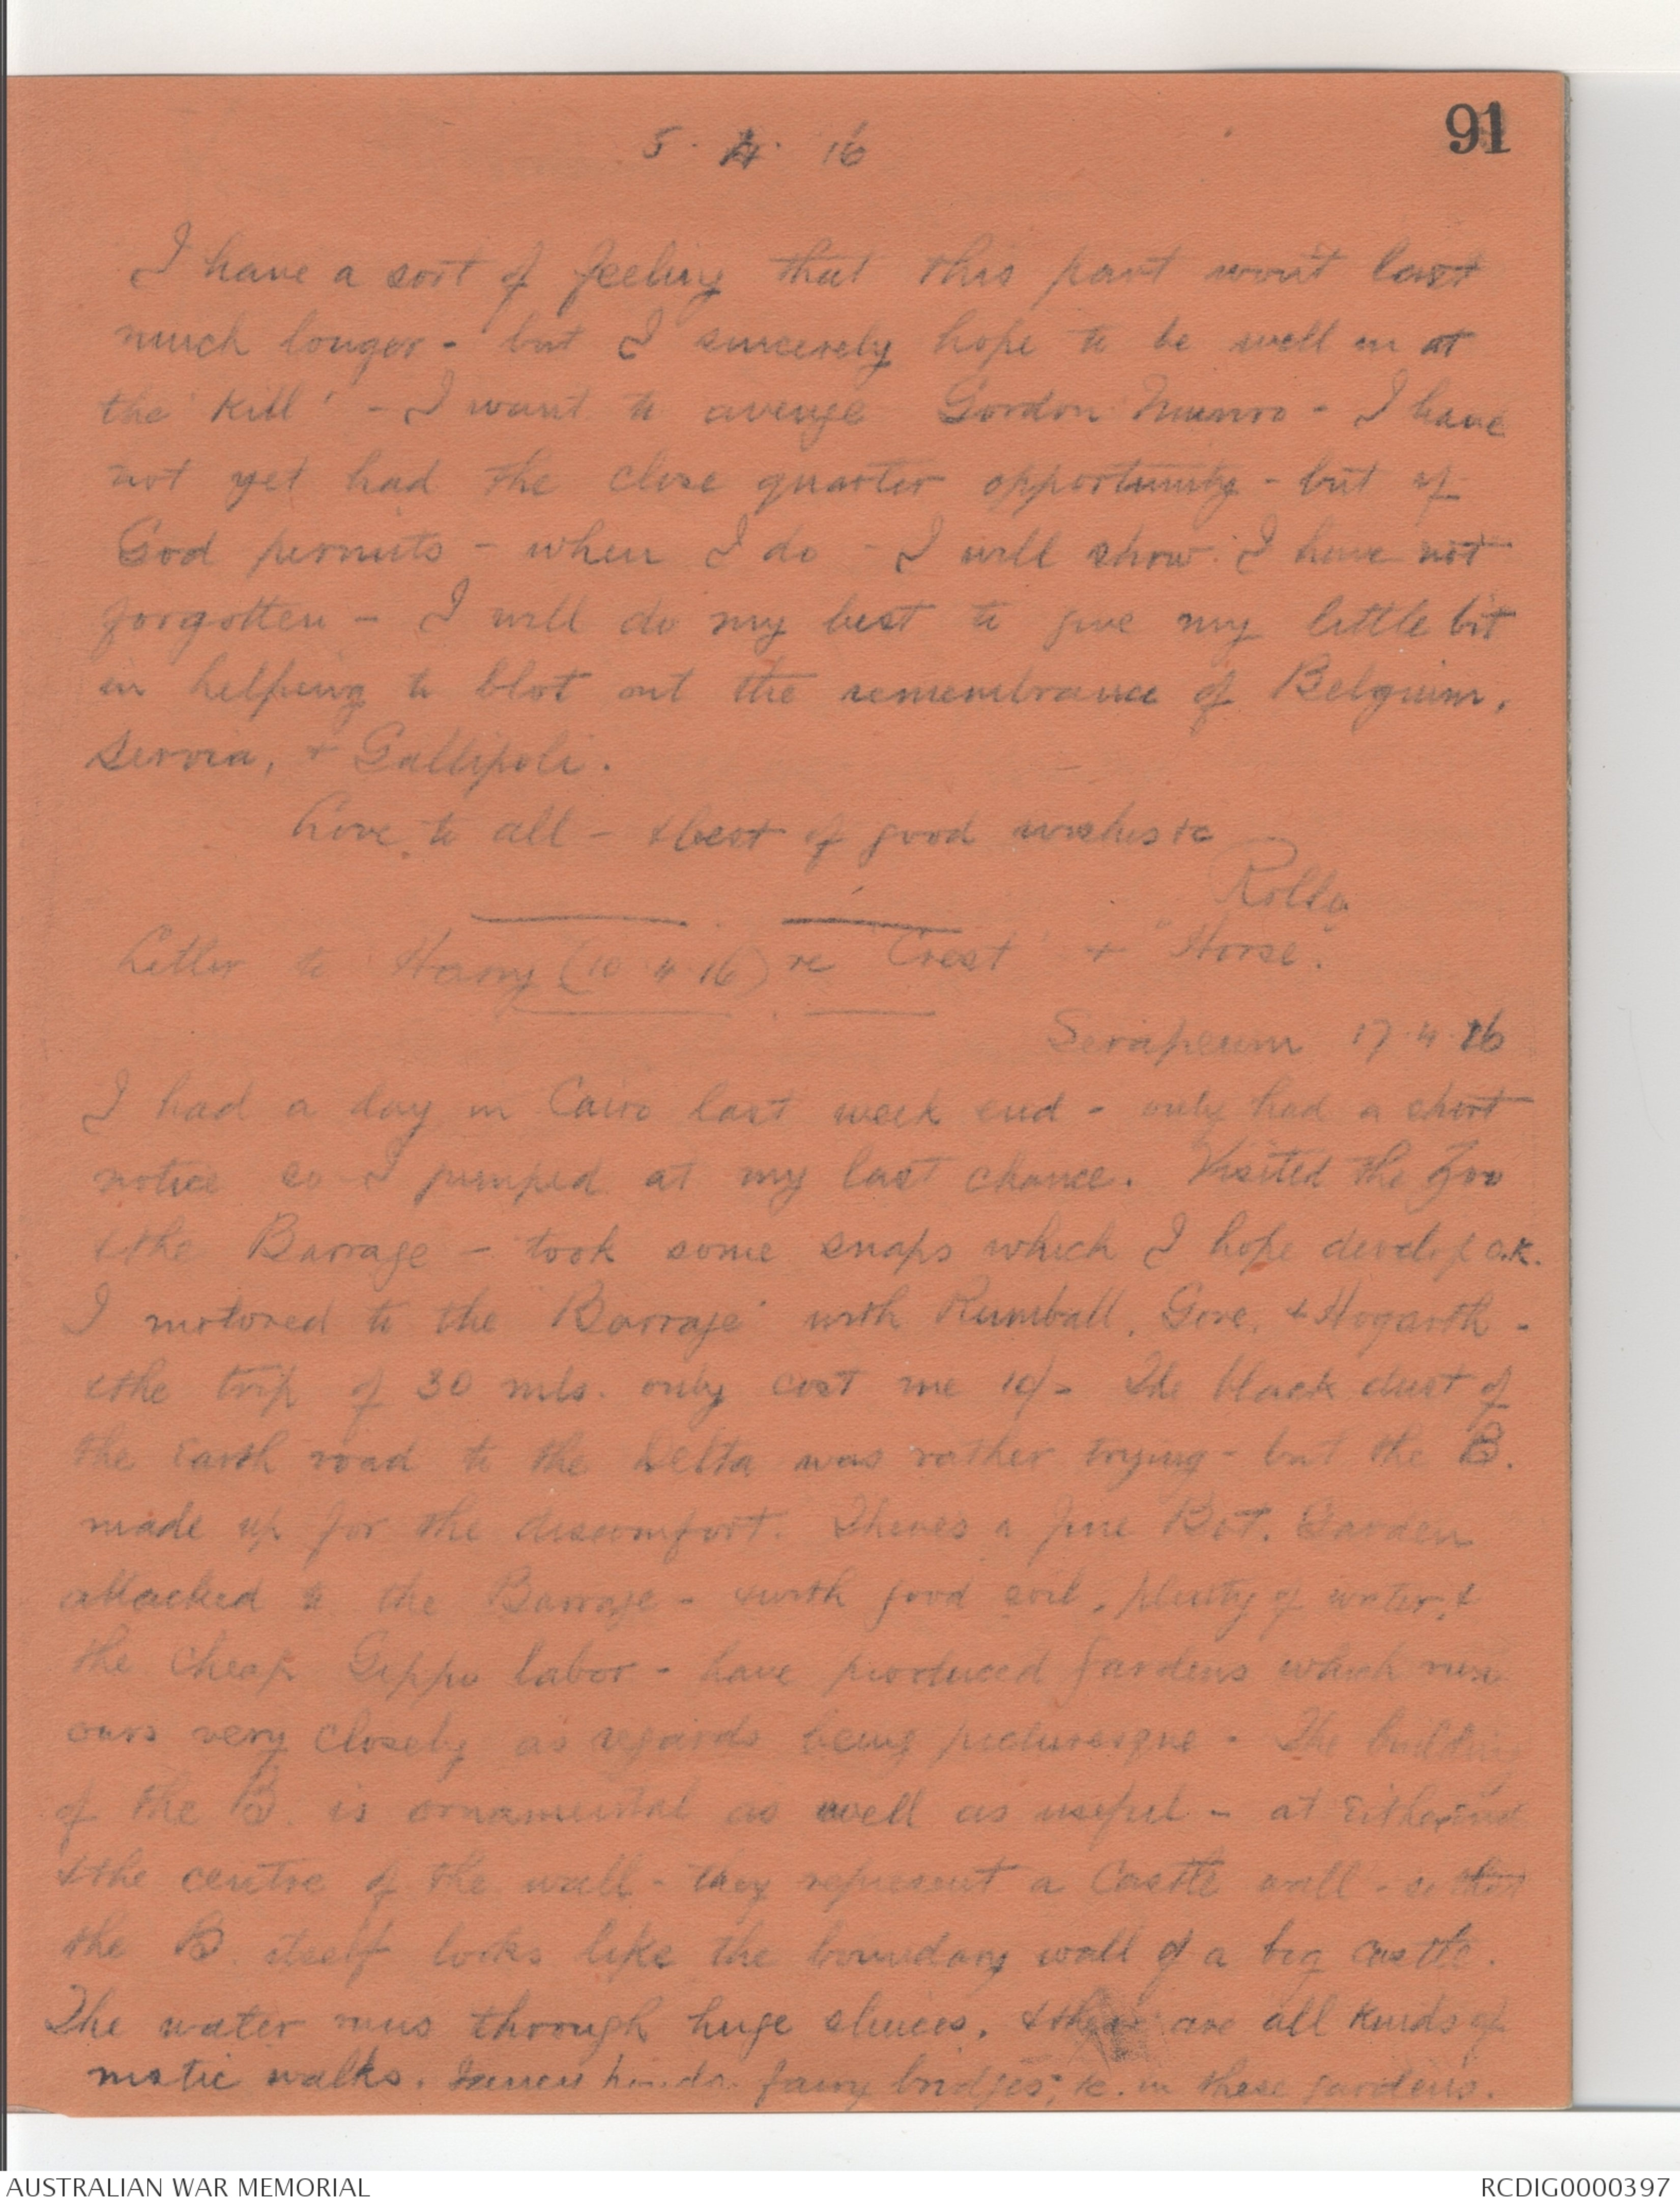 91
5. 4. 16
I have a sort of feeling that this part won't last
much longer - but I sincerely hope to be well in at
the 'Kill' - I want to avenge Gordon Munro - I have
not yet had the close quarter opportunity - but if
God permits - when I do - I will show I have not
forgotten - I will do my best to give my little bit
in helping to blot out the remembrance of Belgium,
Servia, & Gallipoli.
Love to all - & best of good wishes &c
Rolly
Letter to Harry (10 4 16) re "Crest" & "Horse".
Serapeum 17.4.16
I had a day in Cairo last week end - only had a short
notice so I jumped at my last chance. Visited the Zoo
& the Barrage - took some snaps which I hope develop o.k.
I motored to the "Barrage" with Rumball, Gore, & Hogarth -
& the trip of 30 mls. only cost me 10/- The black dust of
the Earth road to the Delta was rather trying - but the B.
made up for the discomfort. Theres a fine Bot. Garden
attached to the Barrage - & with good soil, plenty of water, &
the cheap Gippo labor - have produced gardens which run
ours very closely as regards being picturesque - The building
of the B. is ornamental as well as useful - at Either end
& the centre of the wall - they represent a Castle wall - so that
the B. itself looks like the boundary wall of a big castle.
The water runs through huge sluices, & there are all kinds of
rustic walks, fairy bridges, &c. in these gardens.
AUSTRALIAN WAR MEMORIAL
RCDIG0000397